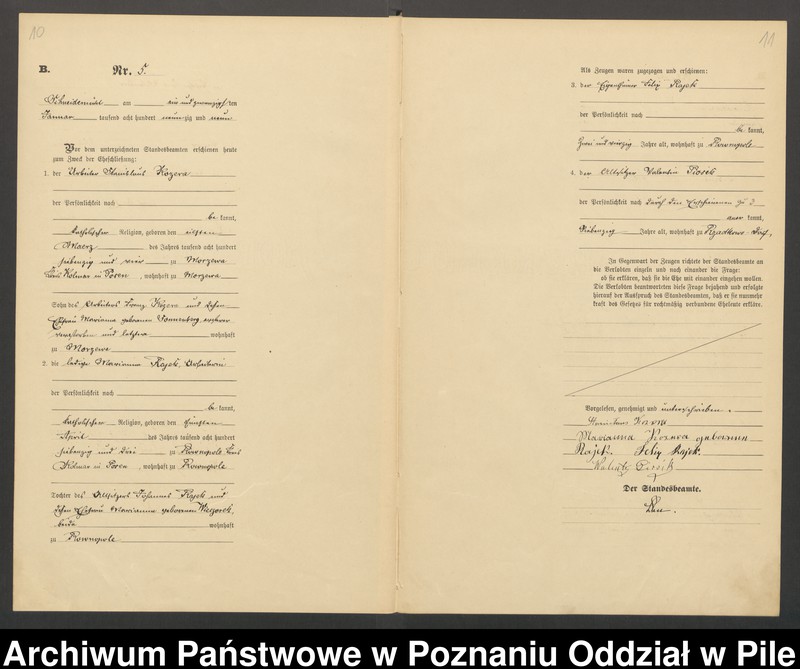 10
B. Nr. 5.
Schneidemühl am ein und zwanzigsten
Januar tausend acht hundert neunzig und neun
Vor dem unterzeichneten Standesbeamten erschienen heute
zum Zweck der Eheschließung:
1. der Arbeiter Stanislaus Kozera
der Persönlichkeit nach
bekannt,
katholischer Religion, geboren den
Maerz des Jahres tausend acht hundert
siebenzig und vier zu Morzewo
Kreis Kolmar in Posen, wohnhaft zu Morzewo
Sohn des Arbeiters Franz Kozera und dessen
Ehefrau Marianna geborenen Sonnenberg, ersterer
verstorben und letztere wohnhaft
zu Morzewo
2. die ledige Marianna Rajek, Arbeiterin
der Persönlichkeit nach
bekannt,
katholischer Religion, geboren den fünften
April des Jahres tausend acht hundert
siebenzig und drei zu Rownopole Kreis
Kolmar in Posen, wohnhaft zu Rownopole
Tochter des Altsitzers Johannes Rajek und
dessen Ehefrau Marianna geborenen
beide wohnhaft
zu Rownopole
11
Als Zeugen waren zugezogen und erschienen:
3. der Eigenthümer Felix Rajek
der Persönlichkeit nach
bekannt,
zwei und vierzig Jahre alt, wohnhaft zu Rownopole
4. der Altsitzer Valentin Piosik
der Persönlichkeit nach durch den Erschienenen zu 3
anerkannt,
siebenzig Jahre alt, wohnhaft zu Rzadkowo Dorf.
In Gegenwart der Zeugen richtete der Standesbeamte an
die Verlobten einzeln und nach einander die Frage:
ob sie erklären, daß sie die Ehe mit einander eingehen wollen.
Die Verlobten beantworteten diese Frage bejahend und erfolgte
hierauf der Ausspruch des Standesbeamten, daß er sie nunmehr
kraft des Gesetzes für rechtmäßig verbundene Eheleute erkläre.
Vorgelesen, genehmigt und unterschrieben.
Marianna Kozera geborene
Rajek. Felix Rajek.
Der Standesbeamte.
Archiwum Państwowe w Poznaniu Oddział w Pile